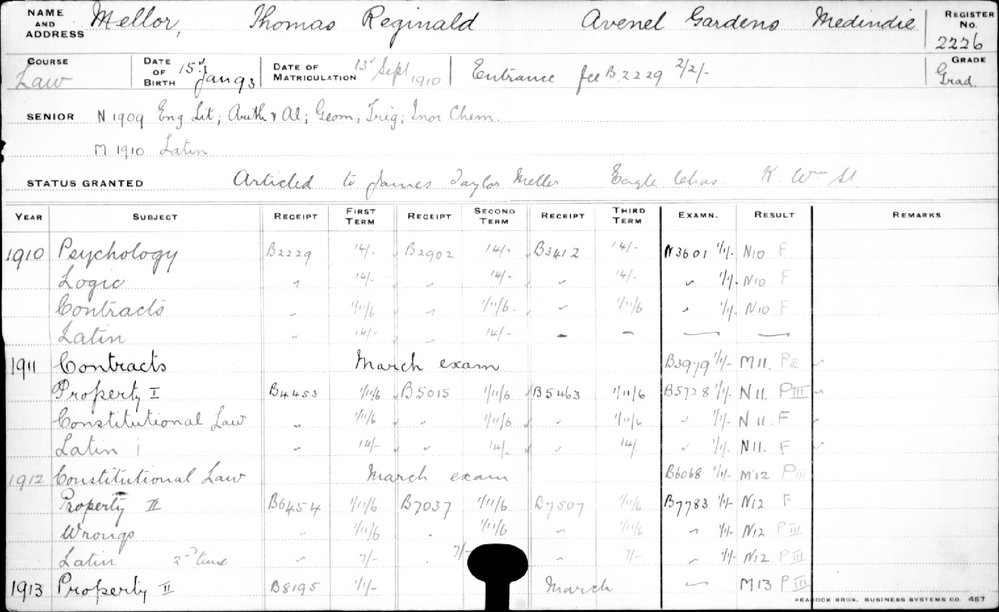 NAME AND ADDRESS Mellor, Thomas Reginald Avenel Gardens Medindie REGISTER No. 2226
COURSE Law DATE OF BIRTH 15th Jan 93 DATE OF MATRICULATION 13th Sept 1910 Entrance fee B2229 2/2/- GRADE Grad.
SENIOR N 1909 Eng Lit; Arith & Al; Geom; Trig; Inor Chem.
M 1910 Latin
STATUS GRANTED Articled to James Taylor Mellor Eagle Chas. K. Wm St
YEAR SUBJECT RECEIPT FIRST TERM RECEIPT SECOND TERM RECEIPT THIRD TERM EXAMN. RESULT REMARKS
1910 Psychology B2229 14/- B2902 14/- B3412 14/- N3601 1/1/- N10 F
Logic " 14/- " 14/- " 14/- " 1/1/- N10 F
Contracts " 1/11/6 " 1/11/6 " 1/11/6 " 1/1/- N10 F
Latin " 14/- 14/- – – — —
1911 Contracts March exam B3979 1/1/- M11. P
Property I B4453 1/11/6 B5015 1/11/6 B5463 1/11/6 B5728 1/1/- N11. P III
Constitutional Law " 1/11/6 " 1/11/6 " 1/11/6 " 1/1/- N11. F
Latin 1 " 14/- " 14/- " 14/ " 1/1/- N11. F
1912 Constitutional Law March exam B6068 1/1/- M'12 P III
Property II B6454 1/11/6 B7037 1/11/6 B7507 1/11/6 B7783 1/1/- N12 F
Wrongs " 1/11/6 " 1/11/6 " 1/11/6 " 1/1/- N12 P III
Latin 2nd time " 7/- " 7/- " 7/- " 1/1/- N12 P III
1913 Property II B8195 1/1/- March — M13 P III
PEACOCK BROS. BUSINESS SYSTEMS CO. 457